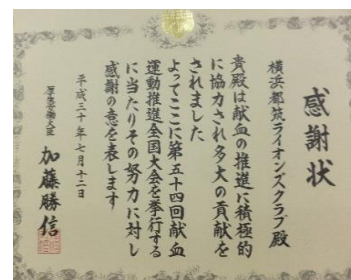 感謝状
横浜都筑ライオンズクラブ殿
貴殿は献血の推進に積極的
に協力され多大の貢献を
されました
よってここに第五十四回献血
運動推進全国大会を挙行する
に当たりその努力に対し
感謝の意を表します
平成三十年七月十二日
厚生労働大臣 加藤勝信